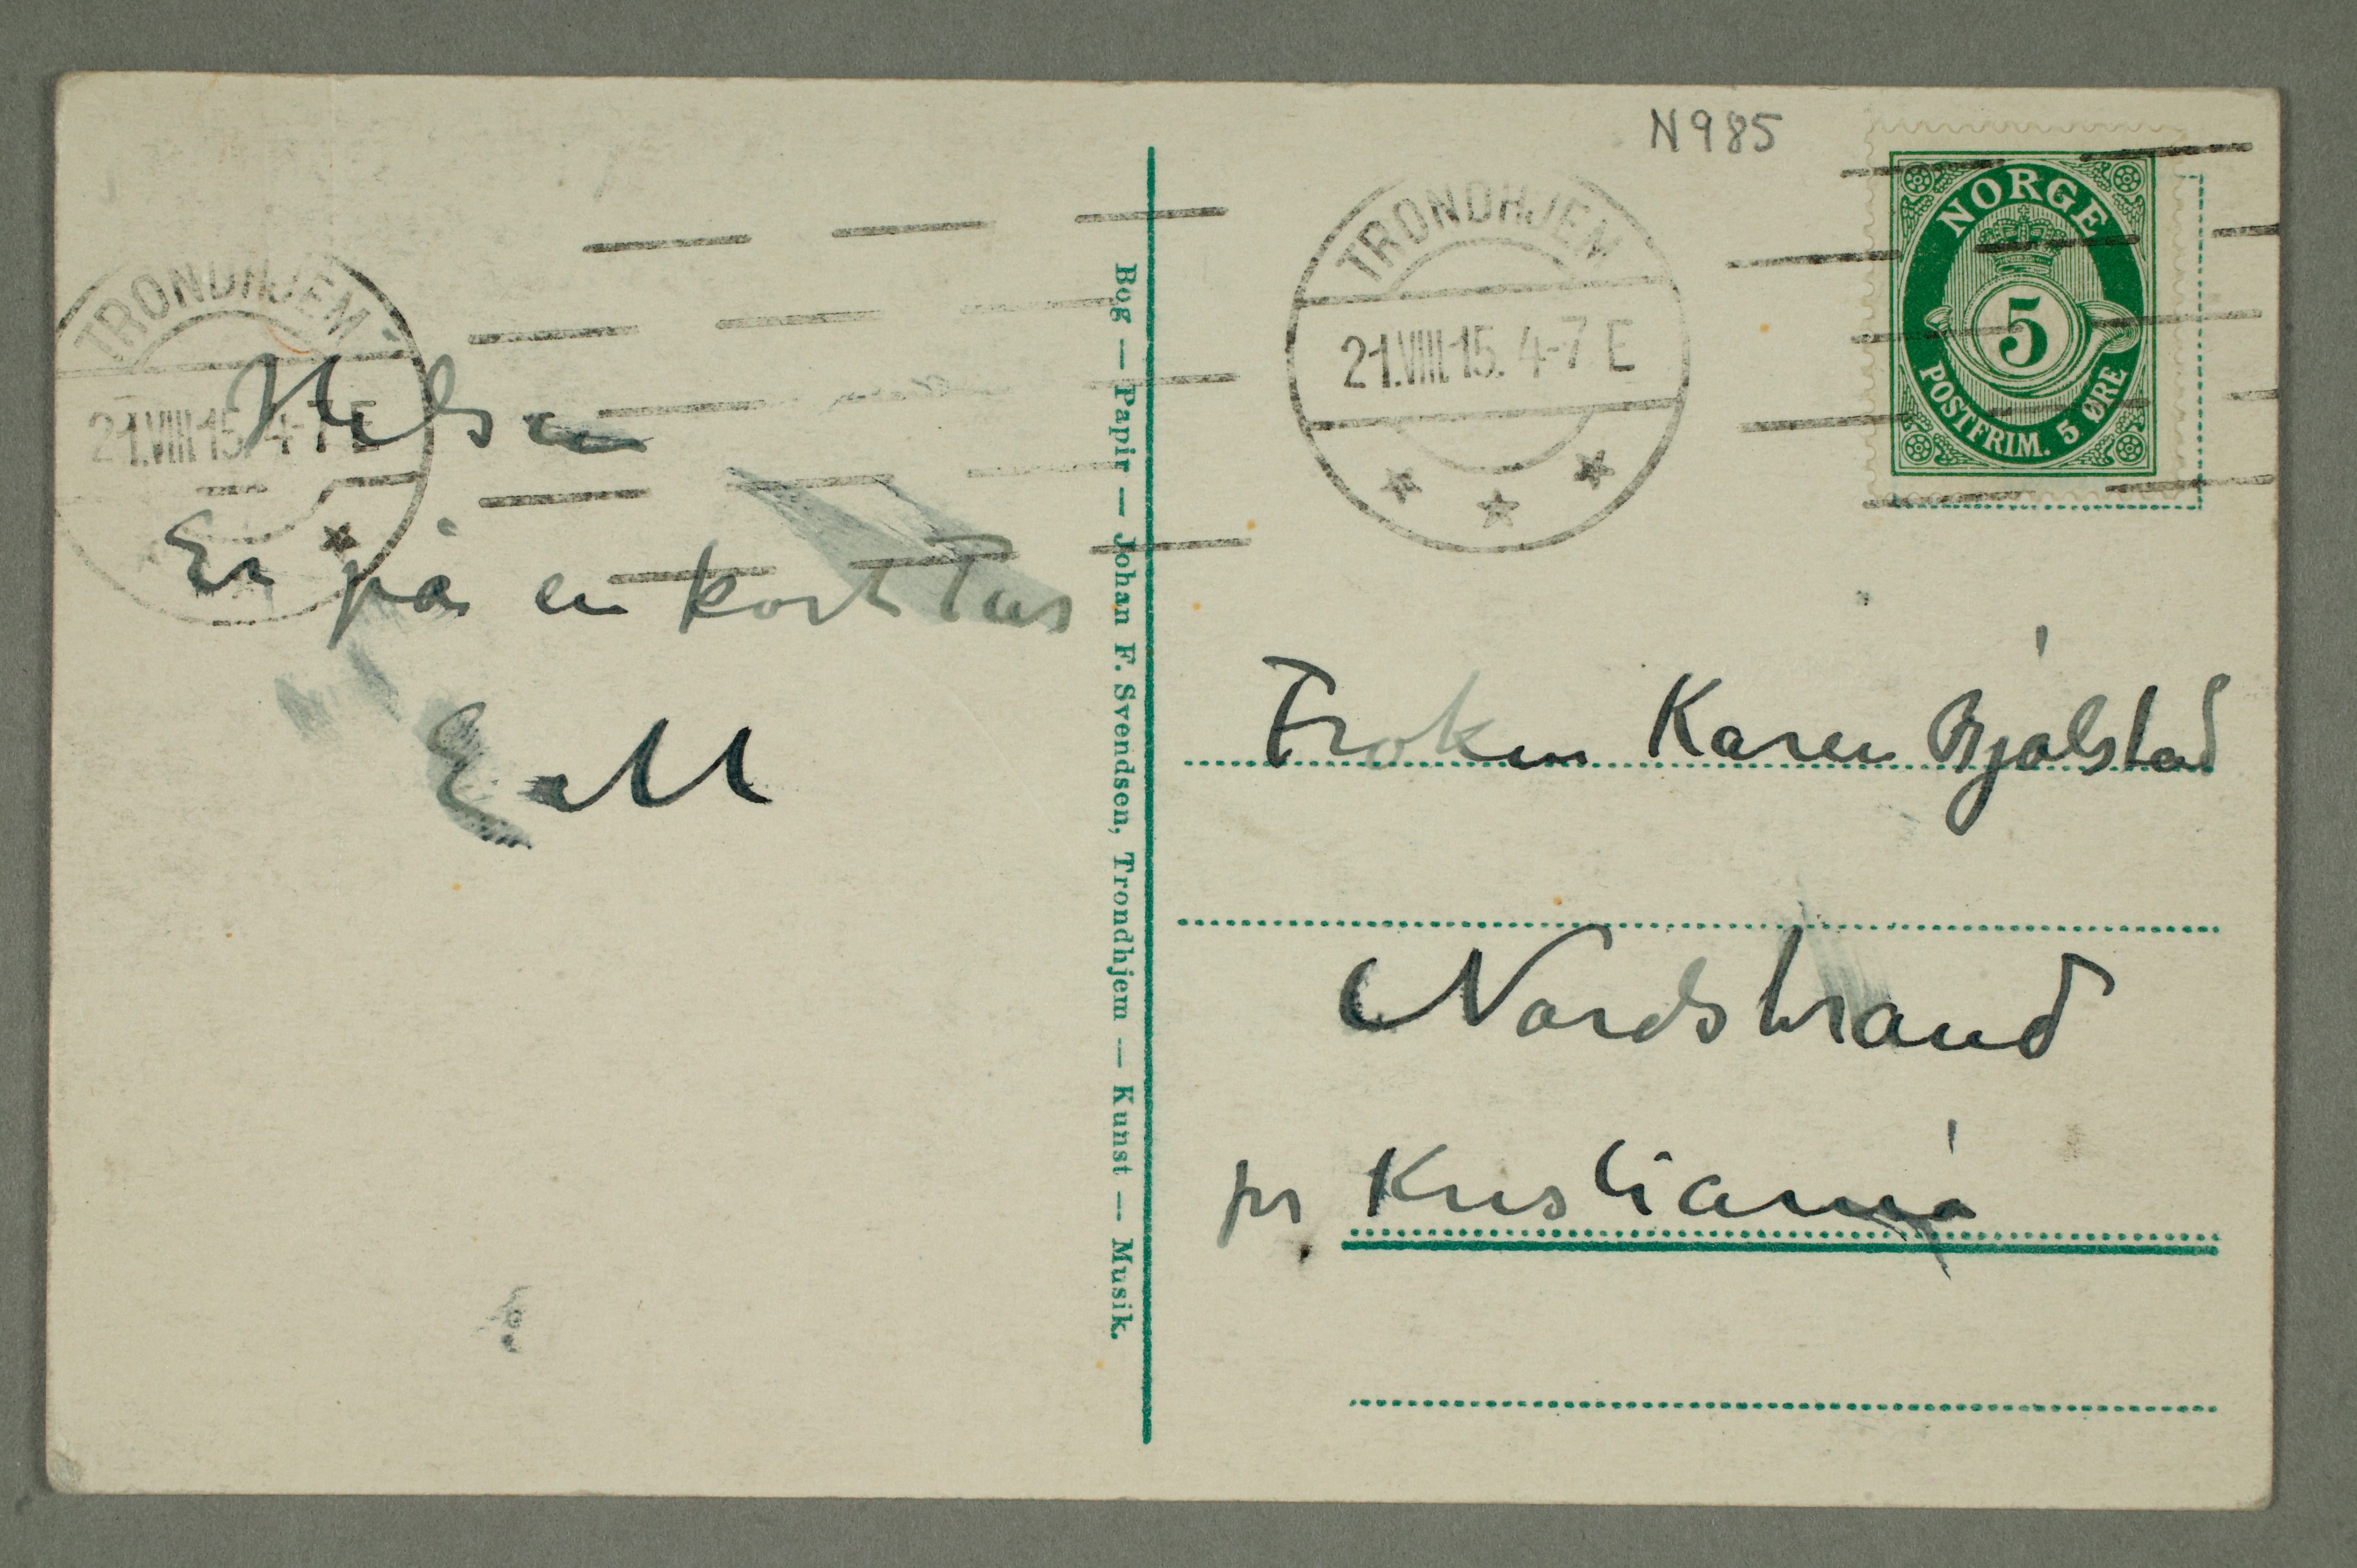 N 985
TRONDHJEM
21.VIII.15. 4-7 E
NORGE
5
POSTFRIM. 5 ØRE
TRONDHJEM
21.VIII.15. 4-7 E
Hilsen
Er på en kort Tur
E M
Bog — Papir — Johan F. Svendsen, Trondhjem — Kunst — Musik.
Frøken Karen Bjølstad
Nordstrand
pr Kristiania